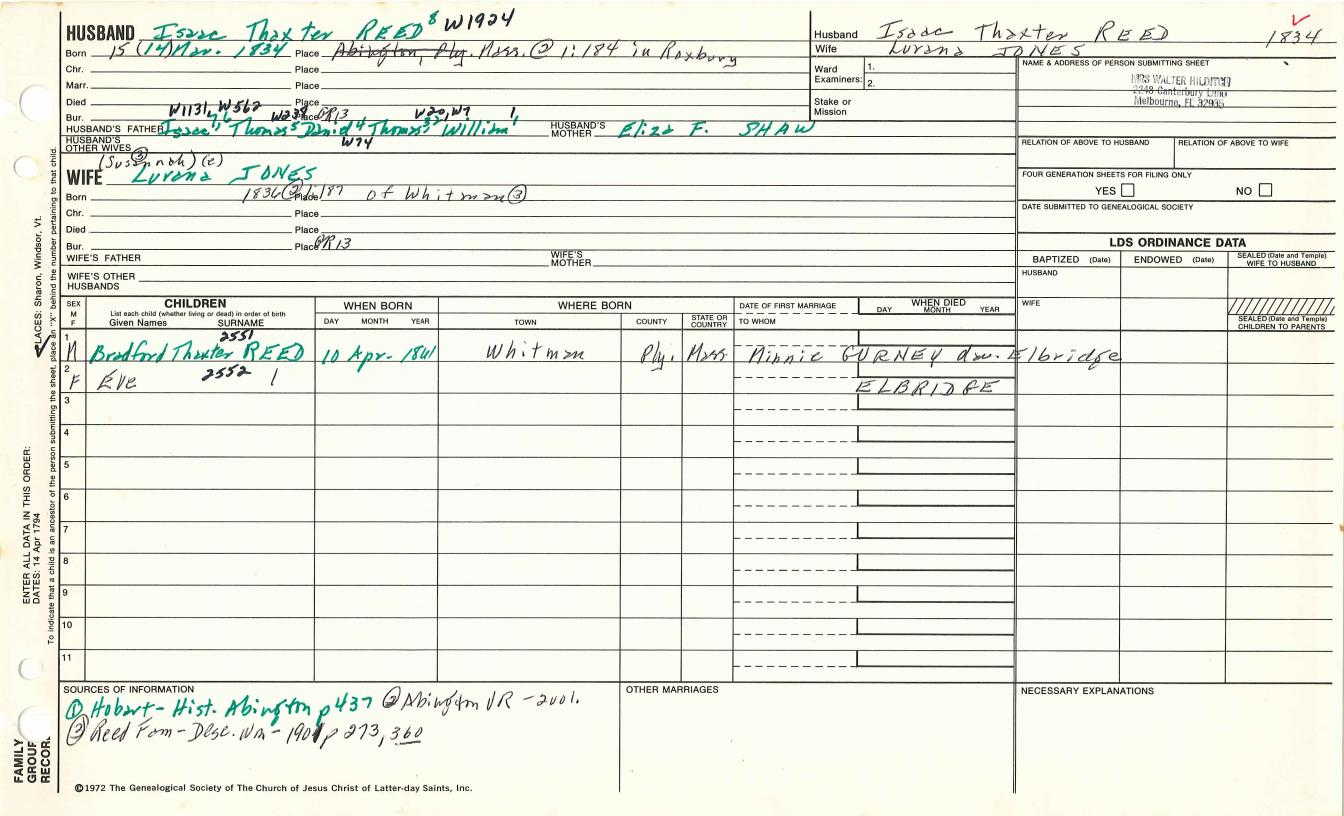 HUSBAND Isaac Thaxter REED 8 W1924
Born 15 (14) Mar. 1834 Place Abington, Ply. Mass. ② 1:184 in Roxbury
Chr. Place
Marr. Place
Died Place
W1131, W562 W238 V20, W7 1
Bur. Place PR13
HUSBAND'S FATHER Isaac Thomas 5 David 4 Thomas William 1 HUSBAND'S MOTHER Eliza F. SHAW
HUSBAND'S OTHER WIVES W74
(Susannah) ② (e)
WIFE Lurana JONES
Born 1836 ② Place 1:187 of Whitman ③
Chr. Place
Died Place
Bur. Place PR13
WIFE'S FATHER WIFE'S MOTHER
WIFE'S OTHER HUSBANDS
Husband Isaac Thaxter REED 1834
Wife Lurana JONES
Ward Examiners: 1.
2.
Stake or Mission
NAME & ADDRESS OF PERSON SUBMITTING SHEET
MRS WALTER HILDITCH
2248 Canterbury Lane
Melbourne, FL 32935
RELATION OF ABOVE TO HUSBAND RELATION OF ABOVE TO WIFE
FOUR GENERATION SHEETS FOR FILING ONLY
YES NO
DATE SUBMITTED TO GENEALOGICAL SOCIETY
LDS ORDINANCE DATA
BAPTIZED (Date) ENDOWED (Date) SEALED (Date and Temple) WIFE TO HUSBAND
HUSBAND
WIFE
SEALED (Date and Temple) CHILDREN TO PARENTS
SEX M F
CHILDREN
List each child (whether living or dead) in order of birth
Given Names SURNAME
WHEN BORN
DAY MONTH YEAR
WHERE BORN
TOWN COUNTY STATE OR COUNTRY
DATE OF FIRST MARRIAGE
TO WHOM
WHEN DIED
DAY MONTH YEAR
2551
1 M Bradford Thaxter REED 10 Apr. 1861 Whitman Ply. Mass Minnie GURNEY dau. Elbridge
2 F Eve 2552 ELBRIDGE
3
4
5
6
7
8
9
10
11
SOURCES OF INFORMATION
① Hobart - Hist. Abington p 437 ② Abington VR - 2001.
③ Reed Fam - Desc. Wm - 1901 p 273, 360
OTHER MARRIAGES
NECESSARY EXPLANATIONS
©1972 The Genealogical Society of The Church of Jesus Christ of Latter-day Saints, Inc.
FAMILY GROUP RECORD
ENTER ALL DATA IN THIS ORDER:
DATES: 14 Apr 1794
PLACES: Sharon, Windsor, Vt.
To indicate that a child is an ancestor of the person submitting the sheet, place an "X" behind the number pertaining to that child.